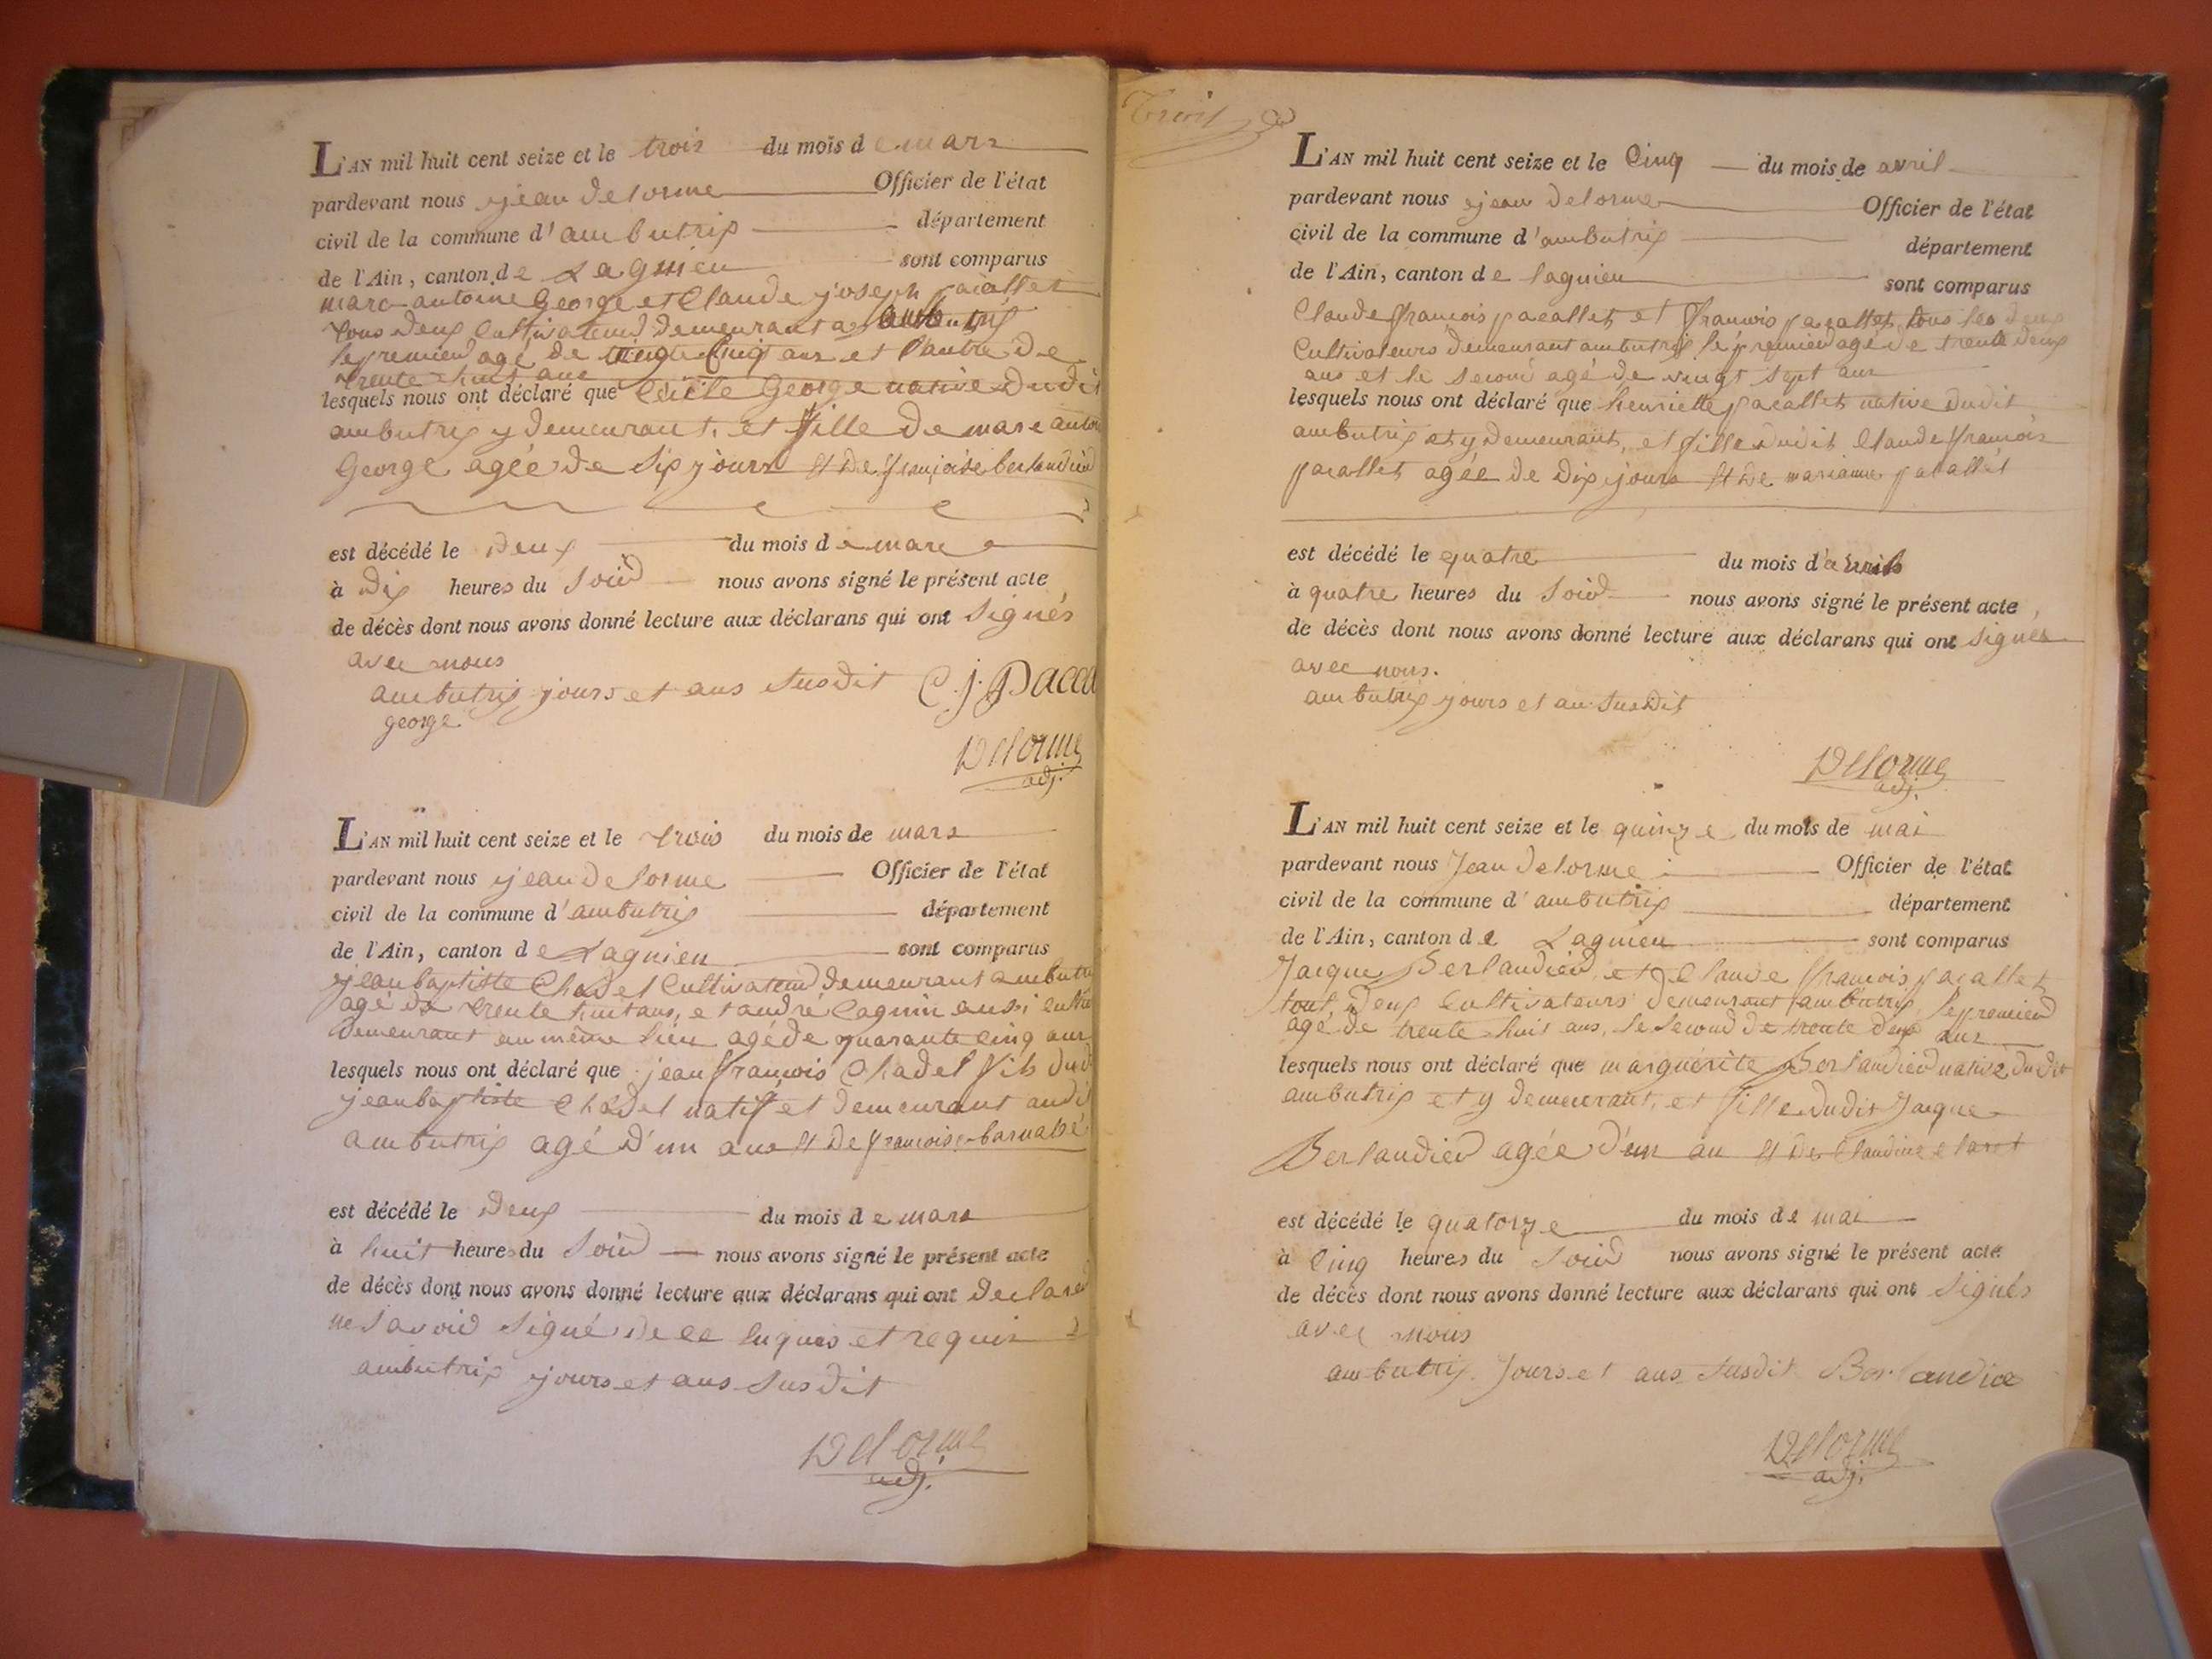 L'AN mil huit cent seize et le trois du mois de mars
pardevant nous jean delorme Officier de l'état
civil de la commune d'ambutrix département
de l'Ain, canton de Lagnieu sont comparus
marc antoine George et Claude joseph pacallet
tous deux Cultivateurs demeurant a ambutrix
le premier agé de vingt Cinq ans et l'autre de
trente huit ans
lesquels nous ont déclaré que Cécile George native dudit
ambutrix y demeurant, et fille de marc antoi
George agée de six jours et de françoise berlandier
est décédé le deux du mois de mars
à dix heures du soir nous avons signé le présent acte
de décès dont nous avons donné lecture aux déclarans qui ont signés
avec nous
ambutrix jours et ans susdit C. j. Pacca
george
Delorme
adj.
L'AN mil huit cent seize et le trois du mois de mars
pardevant nous jean delorme Officier de l'état
civil de la commune d'ambutrix département
de l'Ain, canton de Lagnieu sont comparus
jean baptiste Chadel Cultivateur demeurant ambutri
agé de trente huit ans, et andré Cagnin aussi cultiv
demeurant au même lieu agé de quarante cinq ans
lesquels nous ont déclaré que jean françois Chadel fils dud
jean baptiste Chadel natif et demeurant audit
ambutrix agé d'un ans et de françoise barnabé
est décédé le deux du mois de mars
à huit heures du soir nous avons signé le présent acte
de décès dont nous avons donné lecture aux déclarans qui ont declaré
ne savoir signé de ce enquis et requis
ambutrix jours et ans susdit
Delorme
adj.
L'AN mil huit cent seize et le Cinq du mois de avril
pardevant nous jean delorme Officier de l'état
civil de la commune d'ambutrix département
de l'Ain, canton de lagnieu sont comparus
Claude françois pacallet et françois pacallet tous les deux
Cultivateurs demeurant ambutrix le premier agé de trente deux
ans et le second agé de vingt sept ans
lesquels nous ont déclaré que henriette pacallet native dudit
ambutrix et y demeurant, et fille dudit Claude françois
pacallet agée de dix jours et de marianne pacallet
est décédé le quatre du mois d'avril
à quatre heures du soir nous avons signé le présent acte
de décès dont nous avons donné lecture aux déclarans qui ont signés
avec nous.
ambutrix jours et an susdit
Delorme
adj.
L'AN mil huit cent seize et le quinze du mois de mai
pardevant nous Jean delorme Officier de l'état
civil de la commune d'ambutrix département
de l'Ain, canton de Lagnieu sont comparus
Jacque Berlandier, et Claude françois pacallet
tout deux Cultivateurs demeurant ambutrix le premier
agé de trente huit ans, le second de trente deux ans
lesquels nous ont déclaré que marguérite Berlandier native dudit
ambutrix et y demeurant, et fille dudit Jacque
Berlandier agée d'un an et de Claudine claret
est décédé le quatorze du mois de mai
à Cinq heures du soir nous avons signé le présent acte
de décès dont nous avons donné lecture aux déclarans qui ont signés
avec nous
ambutrix Jours et ans susdit Berlandier
Delorme
adj.